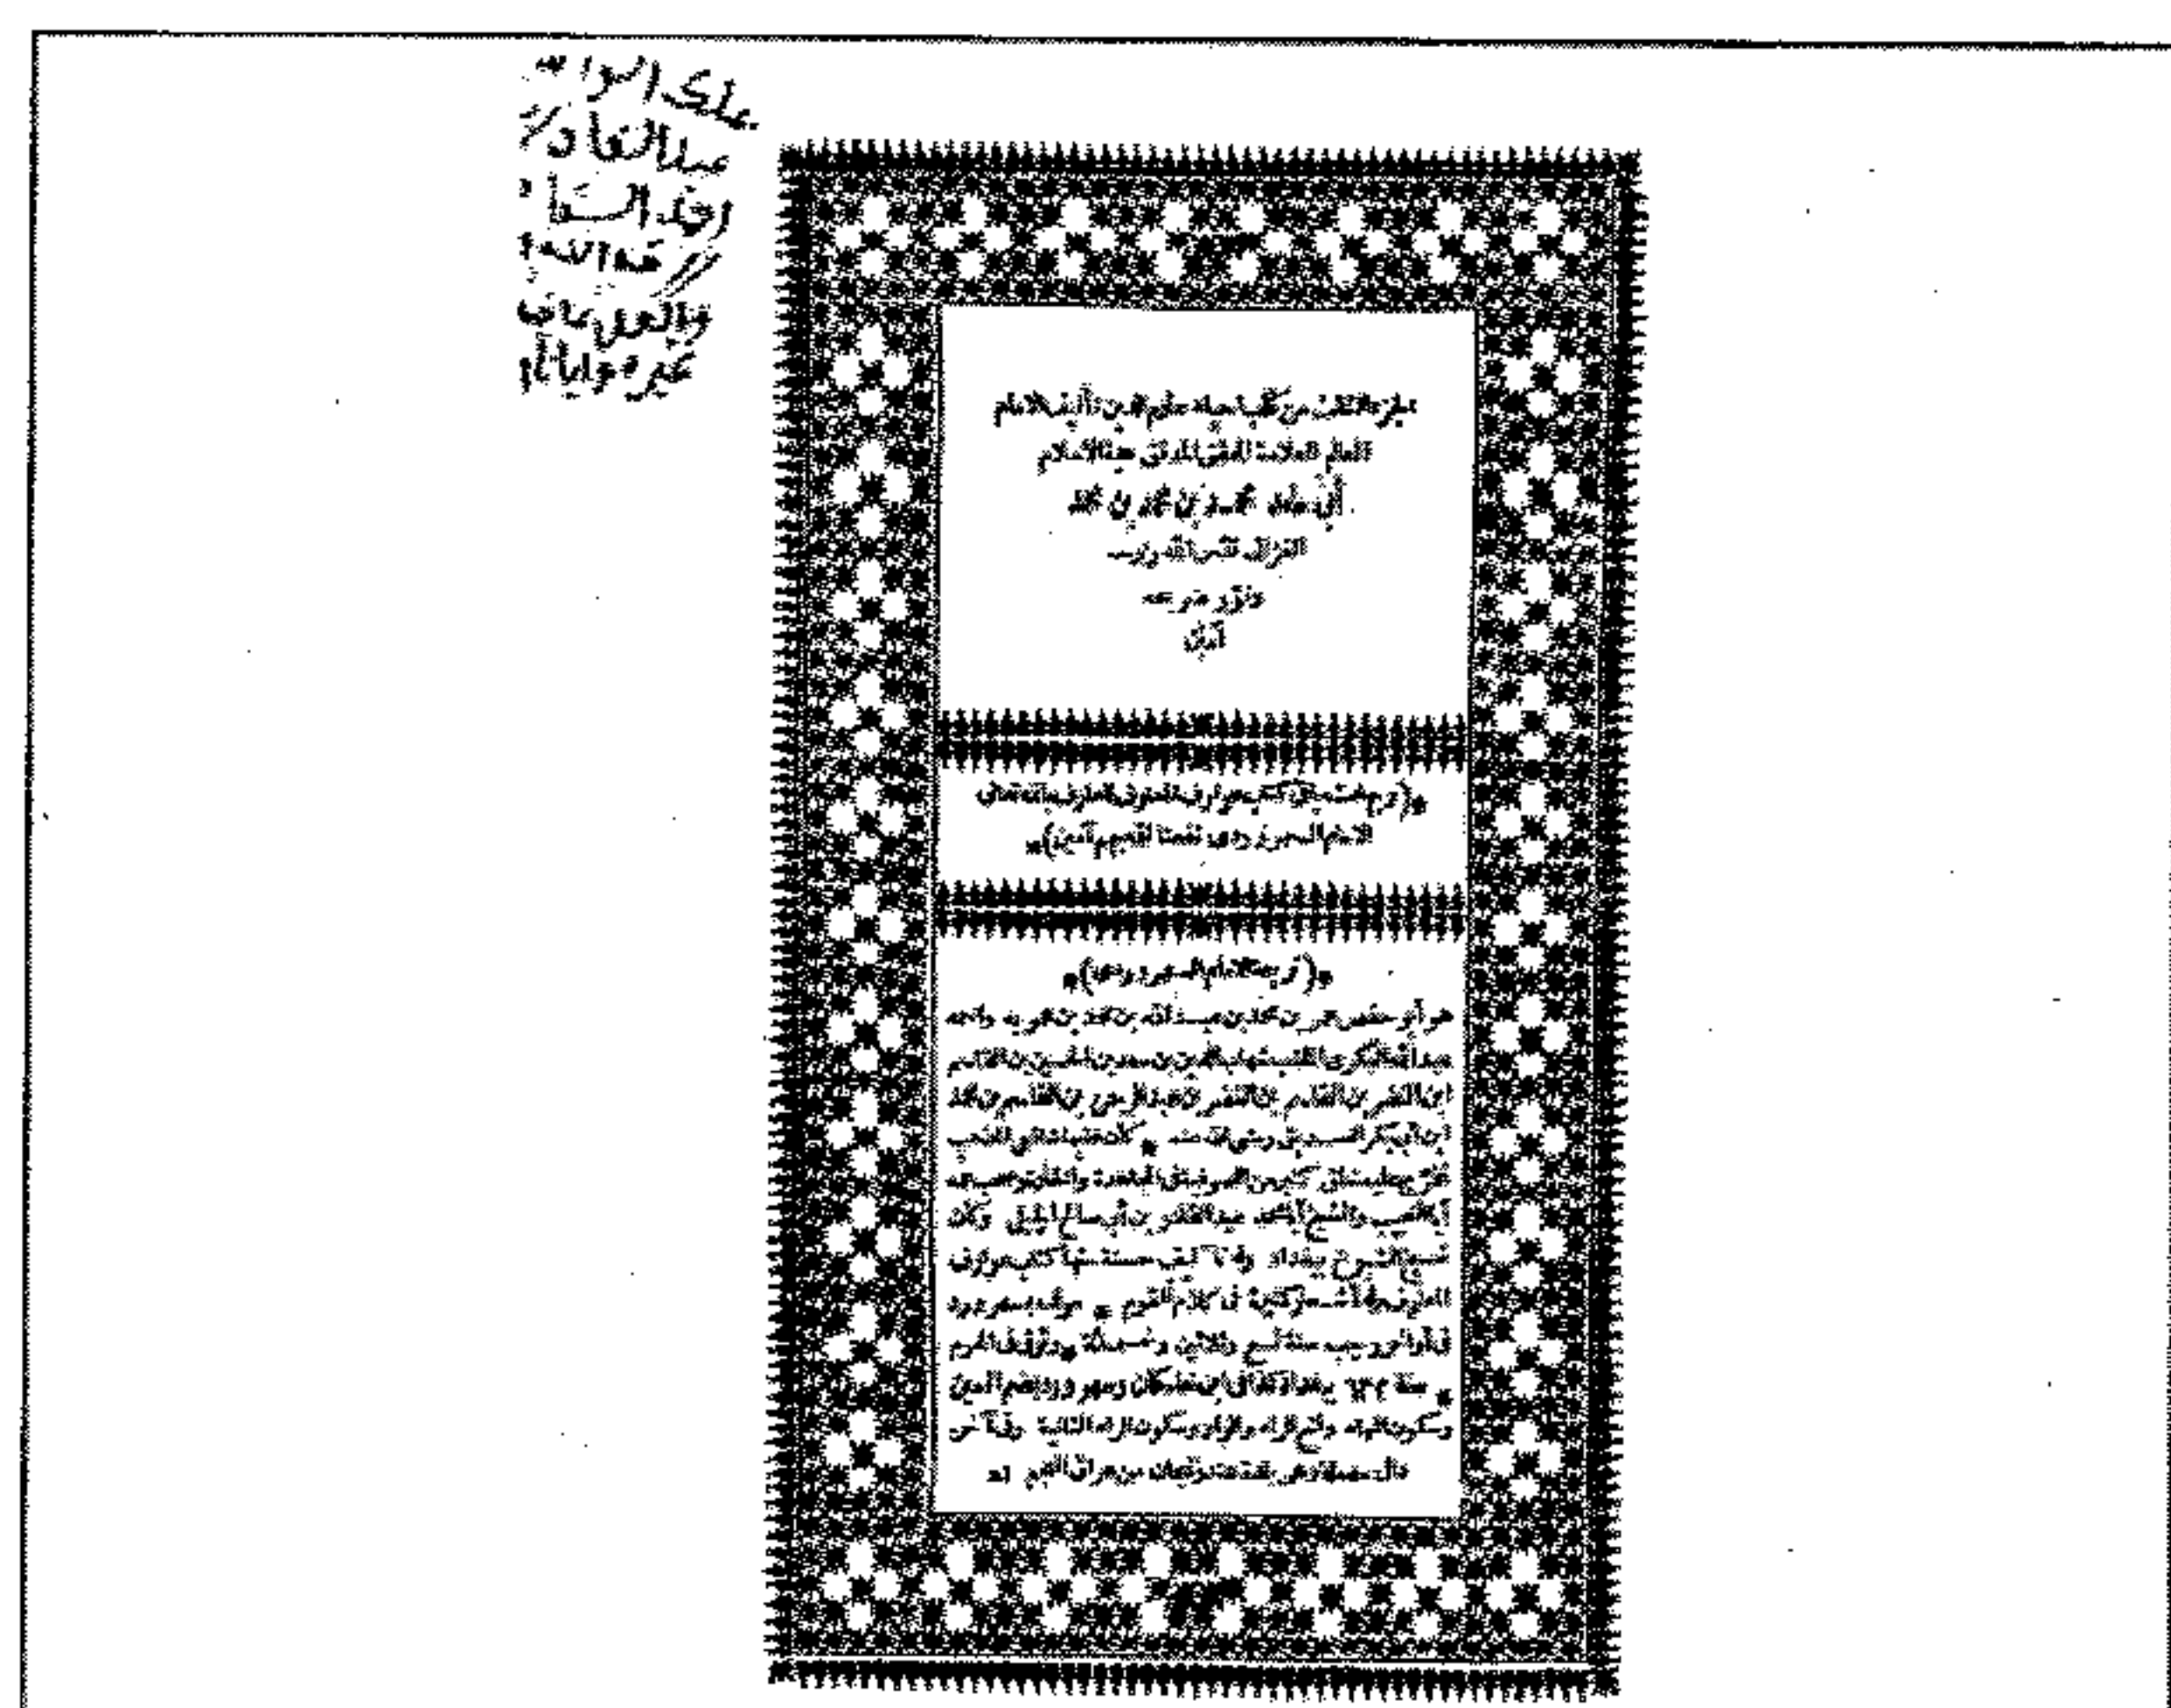 عبد القادر
الجزء الثالث من كتاب احياء علوم الدين تأليف الامام
العالم العلامة المحقق المدقق حجة الاسلام
أبى حامد محمد بن محمد بن محمد
الغزالى قدس الله روحه
ونور ضريحه
آمين
*(وبهامشه باقى كتاب عوارف المعارف للعارف بالله تعالى
الامام السهروردى نفعنا الله بهم آمين)*
*(ترجمة الامام السهروردى)*
هو أبو حفص عمر بن محمد بن عبد الله بن محمد بن عمويه واسمه
عبد الله البكرى الملقب شهاب الدين بن سعد بن الحسين بن القاسم
ابن النضر بن القاسم بن النضر بن عبد الرحمن بن القاسم بن محمد
ابن أبى بكر الصديق رضى الله عنه * كان فقيها شافعى المذهب
تخرج عليه خلق كثير من الصوفية فى المجاهدة والخلوة وصحب عمه
أبا النجيب والشيخ أبا محمد عبد القادر بن أبى صالح الجيلى وكان
شيخ الشيوخ ببغداد وله تآليف حسنة منها كتاب عوارف
المعارف وله أشعار كثيرة فى كلام القوم * مولده بسهرورد
فى أواخر رجب سنة تسع وثلاثين وخمسمائة وتوفى فى المحرم
* سنة ٦٣٢ ببغداد قاله ابن خلكان وسهرورد بضم السين
وسكون الهاء وفتح الراء والواو وسكون الراء الثانية وفى آخره
دال مهملة وهى بليدة عند زنجان من عراق العجم اه